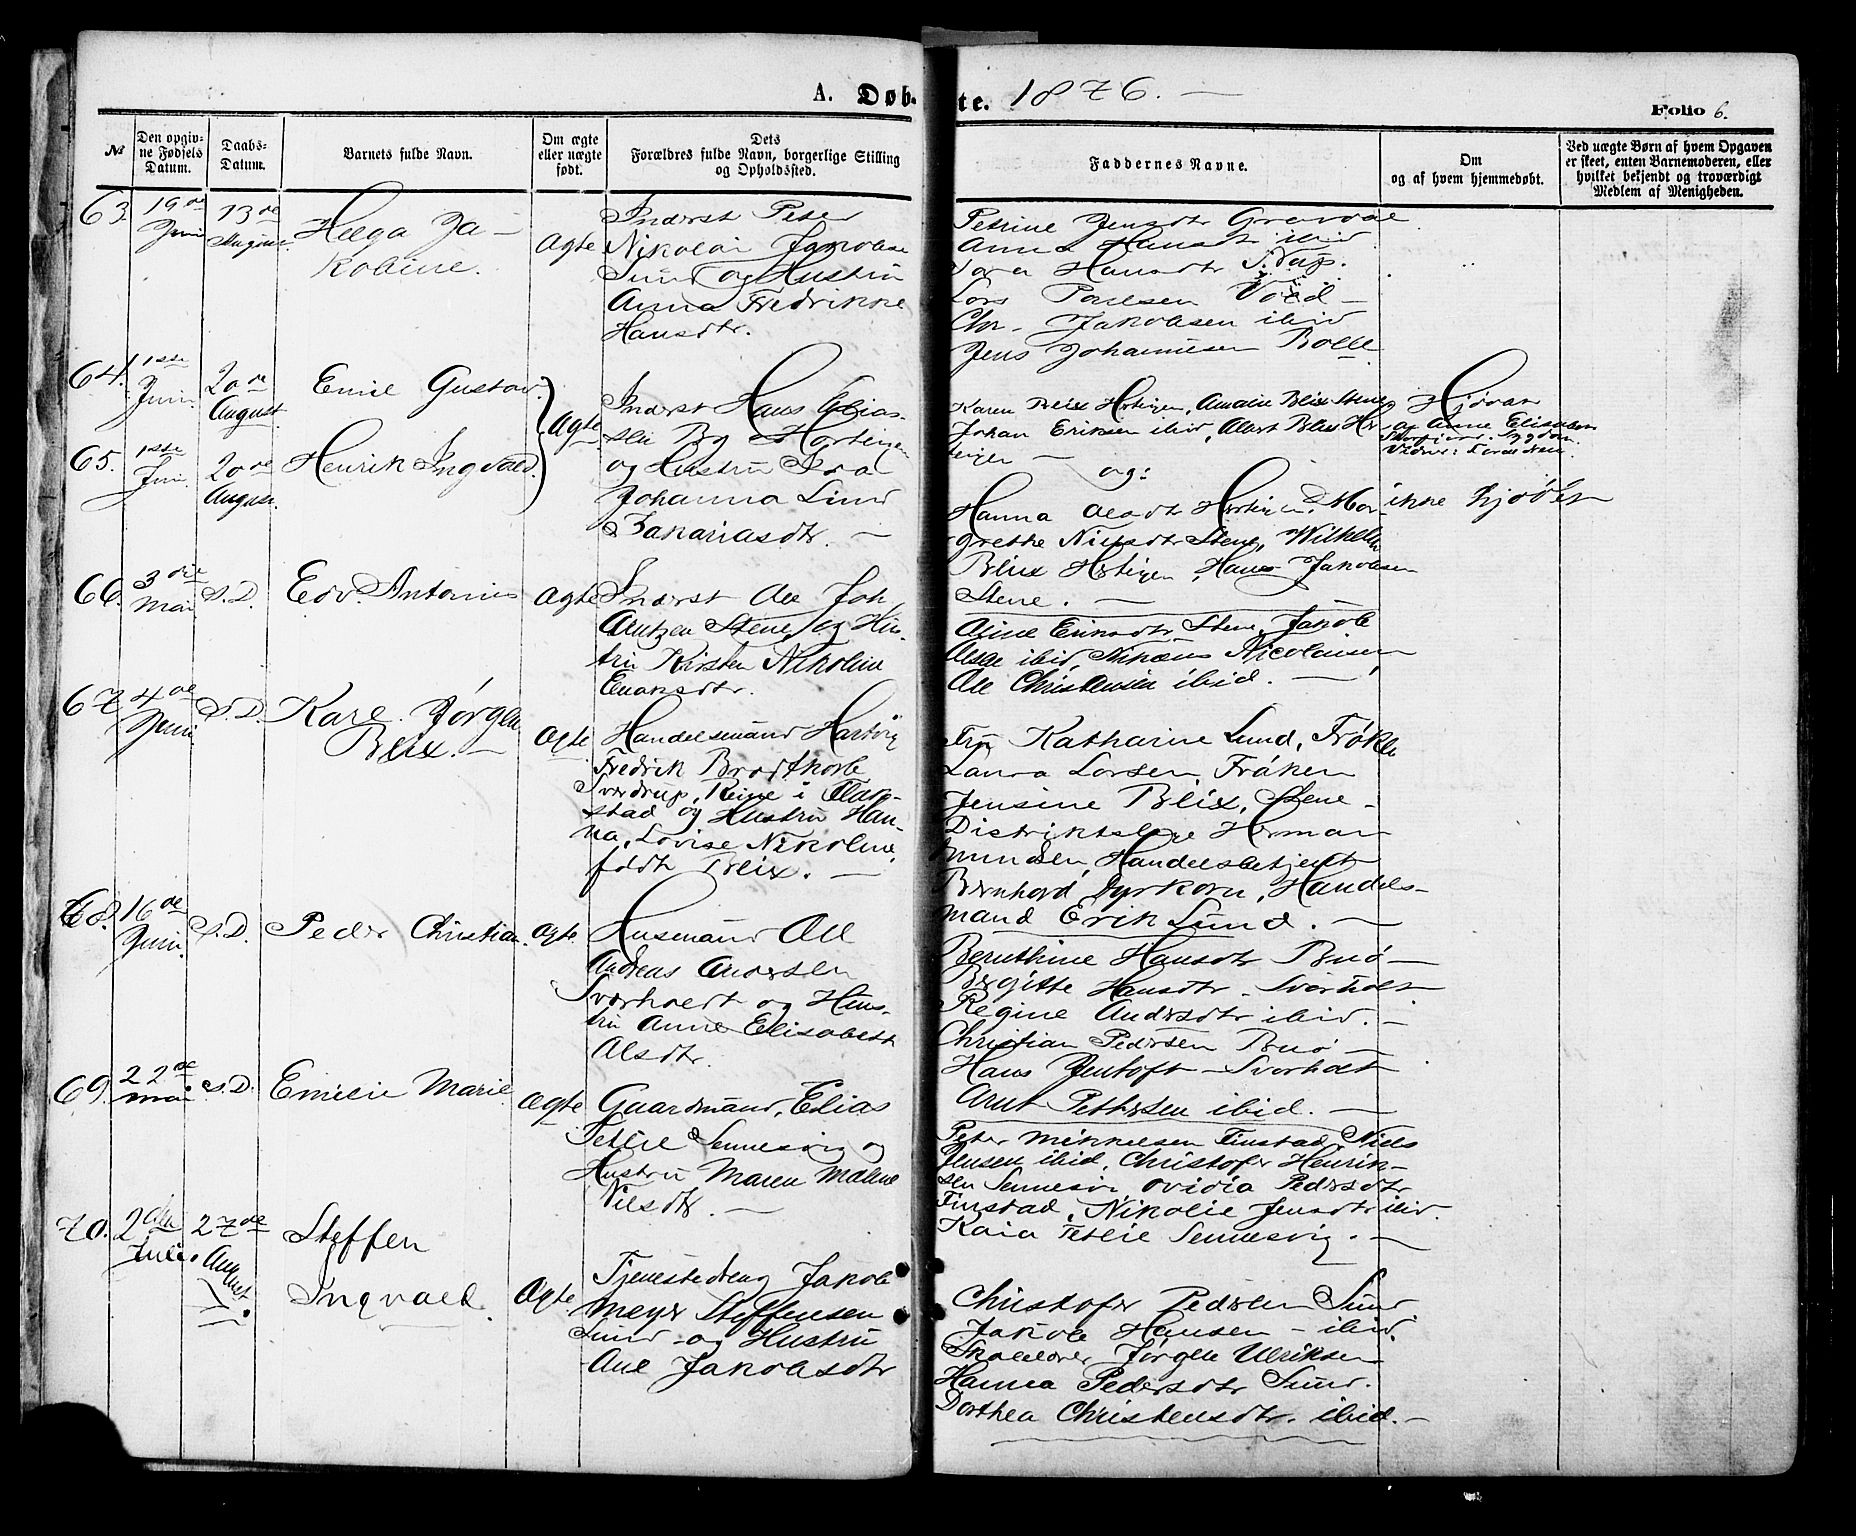 A. Døb-
te. 1876. —
Folio 6.
№
Den opgiv-
ne Fødsels
Datum.
Daabs-
Datum.
Barnets fulde Navn.
Om ægte
eller uægte
født.
Dets
Forældres fulde Navn, borgerlige Stilling
og Opholdssted.
Faddernes Navne.
Om
og af hvem hjemmedøbt.
Ved uægte Børn af hvem Opgaven
er skeet, enten Barnemoderen, eller
hvilket bekjendt og troværdigt
Medlem af Menigheden.
63.
19de
Juni
13de
August.
Helga Ja-
kobine.
Ægte
Inderst Peter
Nikolai Jakobse
Sund og Hustru
Anna Fredrikke
Hansdtr.
Petrine Jensdtr
Anna Hansdtr ibid
Hansdtr
Lars Paulsen
Chr. Jakobsen ibid
Jens Johannesen Bolle
64.
1ste
Juni
20de
August
Emil Gustav.
65.
1ste
Juni
20de
August.
Henrik Ingvald.
Ægte
Inderst Hans Elias-
sen By Hertingen
og Hustru
Johanna Lund
Zakariasdtr. —
Karen Blix Hertingen, Amalie Blix Stene
Johan Eriksen ibid, Albert Blix Her-
tingen —
og:
Hanna Olsdtr Hertingen, Mar-
grethe Nilsdtr Stene, Wilhelm
Blix Hertigen, Hans Jakobsen
Stene. —
af Anne
ikke hjdøbt
66.
3die
Mai
S.D.
Edv. Antonius
Ægte
Inderst Ole Joh.
Arntzen Stene og Hu-
stru Kirsten Nikoline
Enoksdtr.
Eriksdtr Stene, Jakob
Olsen ibid, Nicolaisen
Ole Christensen ibid. —
67.
4de
Juni
S.D.
Karl Jørgen
Blix. —
Ægte
Handelsmand Hartvig
Fredrik Brodtkorb
Sverdrup, Reine i Flak-
stad og Hustru Han-
na, Lovise Nikoline,
født Blix. —
Fru Katharine Lund, Frøken
Laura Larsen, Frøken
Jensine Blix, Stene -
Distriktslæge Herman
Handelsbetjent
Bernhard Dyrkorn, Handels-
mand Erik Lund. —
68.
16de
Juni
S.D.
Peder Christian.
Ægte
Husmand Ole
Andreas Andersen
Sværholt og Hus-
tru Anne Elisabeth
Olsdtr.
Hansdtr
Birgitte Hansdtr - Sværholt
Regine Andersdtr ibid. —
Christian Pedersen
Hans Jentoft - Sværholt
Arnt Pettersen ibid. —
69.
22de
Mai
S.D.
Emilie Marie
Ægte
Gaardmand, Elias
Tetlie Sennesvig og
Hustru Maren Malene
Nilsdtr. —
Peter Mikkelsen Finstad, Niels
Jensen ibid, Christofer Henrik-
sen Sennesvig Ovidia Pedersdtr
Finstad, Nikolie Jensdtr ibid.
Kaia Tetlie Sennesvig. —
70.
2den
Juli.
27de
August
Steffen
Ingvald.
Ægte
Tjenestedreng Jakob
Meyer Steffensen
Sund og Hustru
Ane Jakobsdtr
Christofer Pedersen Sund.
Jakob Hansen - ibid.
Skolelærer Jørgen Ulriksen
Hanna Pedersdtr Sund.
Dorthea Christensdtr. ibid. —